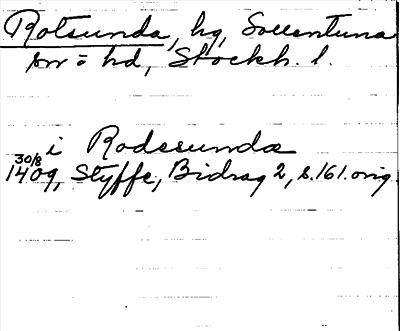 Rotsunda, hg, Sollentuna
sn o hd, Stockh. l.
i Rodesunda
30/8
1409, Styffe, Bidrag 2, s. 161. orig.